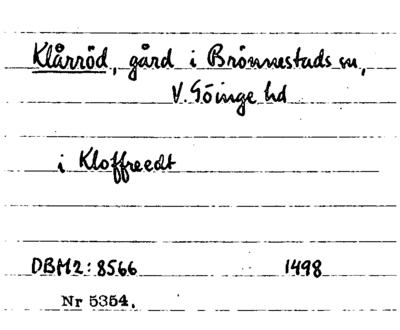 Klårröd, gård i Brönnestads sn,
V. Göinge hd
i Kloffreedt
DBM2: 8566 1498
Nr 5354.